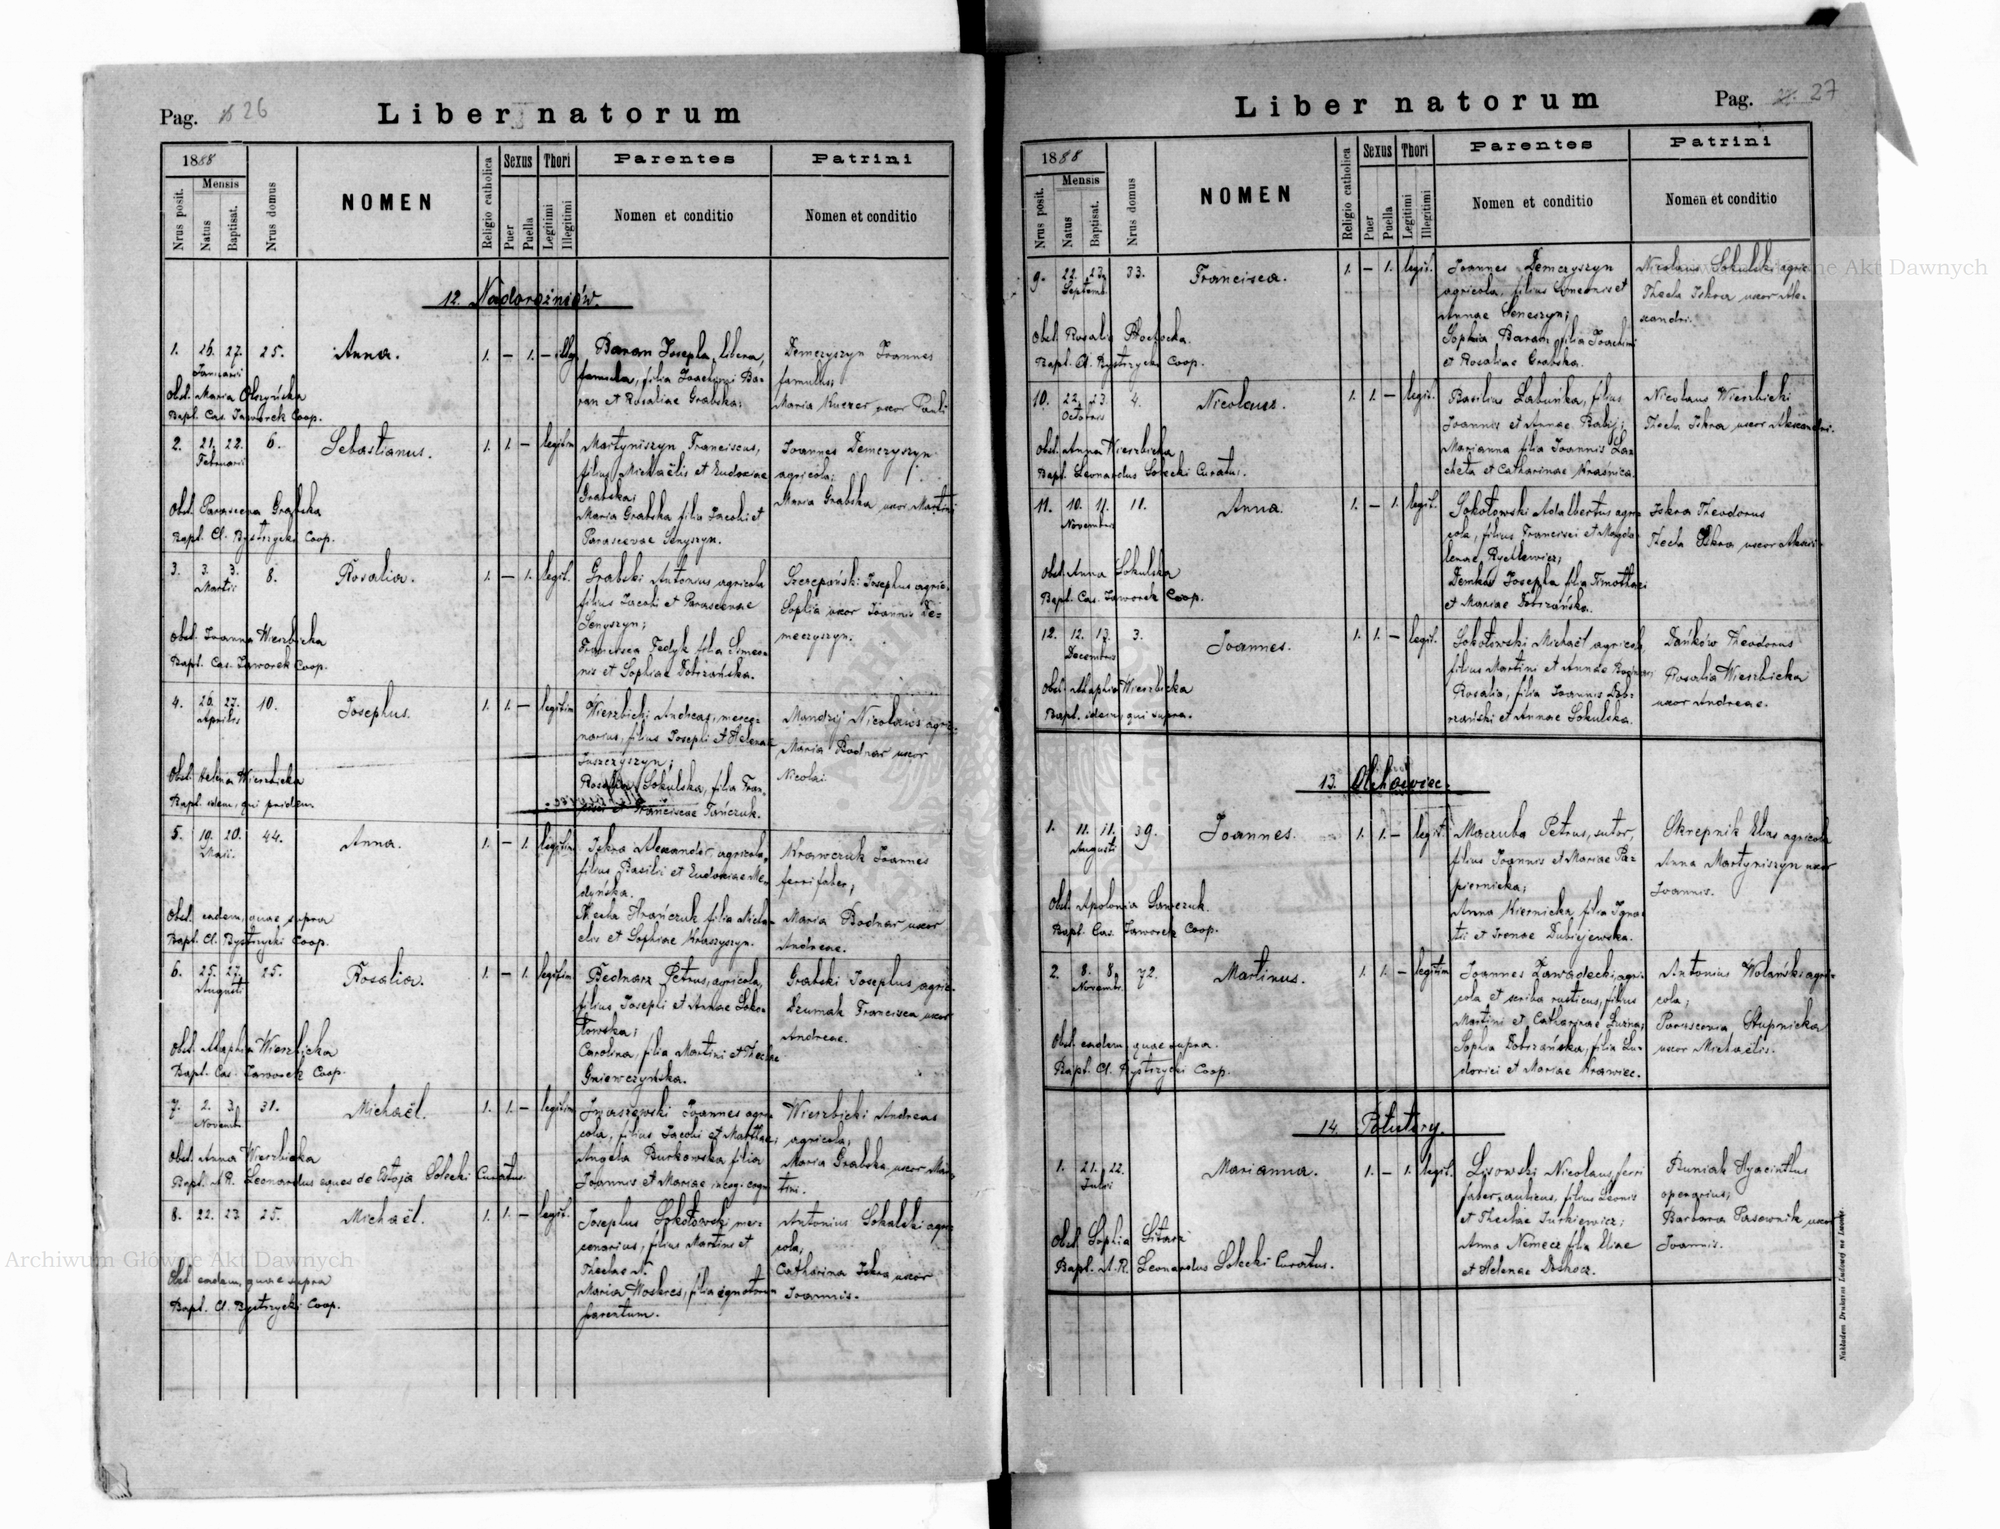 Pag. 26
Liber natorum
1888
Nrus posit.
Mensis
Natus
Baptisat.
Nrus domus
NOMEN
Religio catholica
Sexus
Puer
Puella
Thori
Legitimi
Illegitimi
Parentes
Nomen et conditio
Patrini
Nomen et conditio
12. Nadorożniów.
1. 26. 27. Januarii 25. Anna. 1. — 1. — illeg.
Baran Josepha, libera,
famula, filia Joachimi Ba-
ran et Rosaliae Grabska;
Demczyszyn Joannes
famulus;
Maria Kuczer uxor Pauli
Obst. Maria Olszyńska
Bapt. Cas. Jaworek Coop.
2. 21. 22. Februarii 6. Sebastianus. 1. 1. — legitim
Martyniszyn Franciscus,
filius Michaëlis et Eudoxiae
Grabska;
Maria Grabska filia Jacobi et
Parascevae Senyszyn.
Joannes Demczyszyn
agricola;
Maria Grabska uxor Martini
Obst. Parascena Grabska
Bapt. Cl. Bystrzycki Coop.
3. 3. 3. Martii 8. Rosalia. 1. — 1. legit.
Grabski Antonius agricola
filius Jacobi et Parascevae
Senyszyn;
Francisca Fedyk filia Simeo-
nis et Sophiae Dobrzańska.
Szczepański Josephus agric.
Sophia uxor Joannis De-
meczyszyn.
Obst. Joanna Wierzbicka
Bapt. Cas. Jaworek Coop.
4. 26. 27. Aprilis 10. Josephus. 1. 1. — legitim
Wierzbicki Andreas, merce-
narius, filius Josephi et Helenae
Juszczyszyn;
Rosalia Sokulska, filia Fran-
cisci et Franciscae Tańczuk.
Mandzij Nicolaus agric.
Maria Bodnar uxor
Nicolai
Obst. Helena Wierzbicka
Bapt. idem, qui pridem.
5. 19. 20. Maii. 44. Anna. 1. — 1. legitim
Iskra Alexander, agricola,
filius Basilii et Eudoxiae Me-
dyńska.
Thecla Hrańczuk filia Micha-
elis et Sophiae Kraszyszyn.
Krawczuk Joannes
ferrifaber;
Maria Bodnar uxor
Andreae.
Obst. eadem, quae supra
Bapt. Cl. Bystrzycki Coop.
6. 25. 27. Augusti 25. Rosalia. 1. — 1. legitim
Bednarz Petrus, agricola,
filius Josephi et Annae Soko-
łowska;
Carolina, filia Martini et Theclae
Gniewczyńska.
Grabski Josephus agric.
Dzumak Francisca uxor
Andreae.
Obst. Maphia Wierzbicka
Bapt. Cas. Jaworek Coop.
7. 2. 3. Novemb. 31. Michaël. 1. 1. — legitim
Iwaszewski Joannes agri-
cola, filius Jacobi et Marthae;
Angela Burkowska filia
Joannis et Mariae incog. cogn.
Wierzbicki Andreas
agricola;
Maria Grabska uxor Mar-
tini.
Obst. Anna Wierzbicka
Bapt. A. R. Leonardus eques de Ostoja Solecki Curatus.
8. 22. 23. 25. Michaël. 1. 1. — legit.
Josephus Sokołowski mer-
cenarius, filius Martini et
Theclae N.
Maria Woskres, filia ignotorum
parentum.
Antonius Sokalski agri-
cola;
Catharina Iskra uxor
Joannis.
Obst. eadem, quae supra
Bapt. Cl. Bystrzycki Coop.
Liber natorum
Pag. 27
1888
Nrus posit.
Mensis
Natus
Baptisat.
Nrus domus
NOMEN
Religio catholica
Sexus
Puer
Puella
Thori
Legitimi
Illegitimi
Parentes
Nomen et conditio
Patrini
Nomen et conditio
9. 22. 23. Septemb. 33. Francisca. 1. — 1. legit.
Joannes Demczyszyn
agricola, filius Simeonis et
Annae Seneszyn;
Sophia Baran filia Joachimi
et Rosaliae Grabska.
Nicolaus Sokulski agric.
Thecla Iskra uxor Ale-
xandri.
Obst. Rosalia
Bapt. Cl. Bystrzycki Coop.
10. 22. 23. Octobris 4. Nicolaus. 1. 1. — legit.
Basilius Łabuńka, filius
Joannis et Annae Babij;
Marianna filia Joannis La-
cheta et Catharinae Krasnica.
Nicolaus Wierzbicki
Thecla Iskra uxor Alexandri.
Obst. Anna Wierzbicka
Bapt. Leonardus Solecki Curatus.
11. 10. 11. Novembris 11. Anna. 1. — 1. legit.
Sokołowski Adalbertus agri-
cola, filius Francisci et Magda-
lenae Rychlewicz;
Demków Josepha filia Timothaei
et Mariae Dobrzańska.
Iskra Theodorus
Thecla Iskra uxor Alexan-
Obst. Anna Sokulska
Bapt. Cas. Jaworek Coop.
12. 12. 13. Decembris 3. Joannes. 1. 1. — legit.
Sokołowski Michaël agricola,
filius Martini et Annae Bodnar;
Rosalia, filia Joannis Dob-
rzański et Annae Sokulska.
Dańków Theodorus
Rosalia Wierzbicka
uxor Andreae.
Obst. Maphia Wierzbicka
Bapt. idem, qui supra.
13. Olchowiec.
1. 11. 11. Augusti 39. Joannes. 1. 1. — legit.
Maczuba Petrus, sutor,
filius Joannis et Mariae Pa-
piernicka;
Anna Kiernicka filia Igna-
tii et Irenae Dubiejewska.
Skrepnik Elias agricola
Anna Martyniszyn uxor
Joannis.
Obst. Apolonia Sawczuk.
Bapt. Cas. Jaworek Coop.
2. 8. 8. Novembr. 72. Martinus. 1. 1. — legitim
Joannes Zawadecki agri-
cola et scriba rusticus, filius
Martini et Catharinae Luzna;
Sophia Dobrzańska, filia Lu-
dovici et Mariae Krawiec.
Antonius Wolański agri-
cola;
Parascenia Stupnicka
uxor Michaëlis.
Obst. eadem, quae supra.
Bapt. Cl. Bystrzycki Coop.
14. Potutory.
1. 21. 22. Julii Marianna. 1. — 1. legit.
Lisowski Nicolaus, ferri
faber, aulicus, filius Leonis
et Theclae Jurkiewicz;
Anna Nemecz filia Eliae
et Helenae Doskocz.
Buniak Hyacinthus
operarius;
Barbara Pasewnik uxor
Joannis.
Obst. Sophia Sitarz
Bapt. A. R. Leonardus Solecki Curatus.
Nakładem Drukarni Ludowej we Lwowie.
Archiwum Główne Akt Dawnych